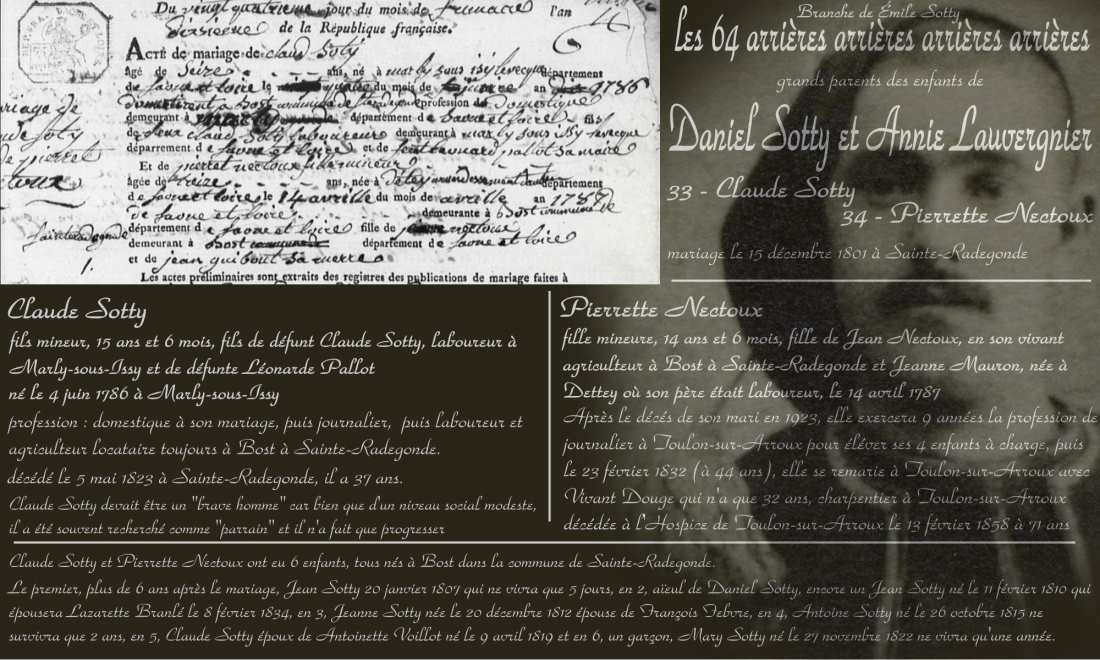 Du vingt quatrieme jour du mois de frimaire l'an
dixsieme de la République française.
ACTE de mariage de claud Soty
âgé de Seize ans, né à marly sous issy leveque département
de saone et loire le du mois de an 1786
profession de Domestique
demeurant à département de saone et loire fils
de deux claud Soty laboureur demeurant à marly sous issy leveque
département de saone et loire et de pallot sa maire
Et de pierret nectoux fille mineur
âgée de treize ans, née à detey département
de saone et loire le 14 avrille du mois de avrille an 1787
de saone et loire demeurante à Bost
département de saone et loire fille de
demeurant à Bost département de saone et loire
et de jean
Les actes préliminaires sont extraits des registres des publications de mariage faites à
Branche de Émile Sotty
les 64 arrières arrières arrières arrières
grands parents des enfants de
Daniel Sotty et Annie Lauvergnier
33 - Claude Sotty
34 - Pierrette Nectoux
mariage le 15 décembre 1801 à Sainte-Radegonde
Claude Sotty
fils mineur, 15 ans et 6 mois, fils de défunt Claude Sotty, laboureur à
Marly-sous-Issy et de défunte Léonarde Pallot
né le 4 juin 1786 à Marly-sous-Issy
profession : domestique à son mariage, puis journalier, puis laboureur et
agriculteur locataire toujours à Bost à Sainte-Radegonde.
décédé le 5 mai 1823 à Sainte-Radegonde, il a 37 ans.
Claude Sotty devait être un "brave homme" car bien que d'un niveau social modeste,
il a été souvent recherché comme "parrain" et il n'a fait que progresser
Pierrette Nectoux
fille mineure, 14 ans et 6 mois, fille de Jean Nectoux, en son vivant
agriculteur à Bost à Sainte-Radegonde et Jeanne Mauron, née à
Dettey où son père était laboureur, le 14 avril 1787
Après le décés de son mari en 1923, elle exercera 9 années la profession de
journalier à Toulon-sur-Arroux pour éléver ses 4 enfants à charge, puis
le 23 février 1832 (à 44 ans), elle se remarie à Toulon-sur-Arroux avec
Vivant Douge qui n'a que 32 ans, charpentier à Toulon-sur-Arroux
décédée à l'Hospice de Toulon-sur-Arroux le 13 février 1858 à 71 ans
Claude Sotty et Pierrette Nectoux ont eu 6 enfants, tous nés à Bost dans la commune de Sainte-Radegonde.
Le premier, plus de 6 ans après le mariage, Jean Sotty 20 janvier 1807 qui ne vivra que 5 jours, en 2, aïeul de Daniel Sotty, encore un Jean Sotty né le 11 février 1810 qui
épousera Lazarette Branlé le 8 février 1834, en 3, Jeanne Sotty née le 20 décembre 1812 épouse de François Febvre, en 4, Antoine Sotty né le 26 octobre 1815 ne
survivra que 2 ans, en 5, Claude Sotty époux de Antoinette Voillot né le 9 avril 1819 et en 6, un garçon, Mary Sotty né le 27 novembre 1822 ne vivra qu'une année.